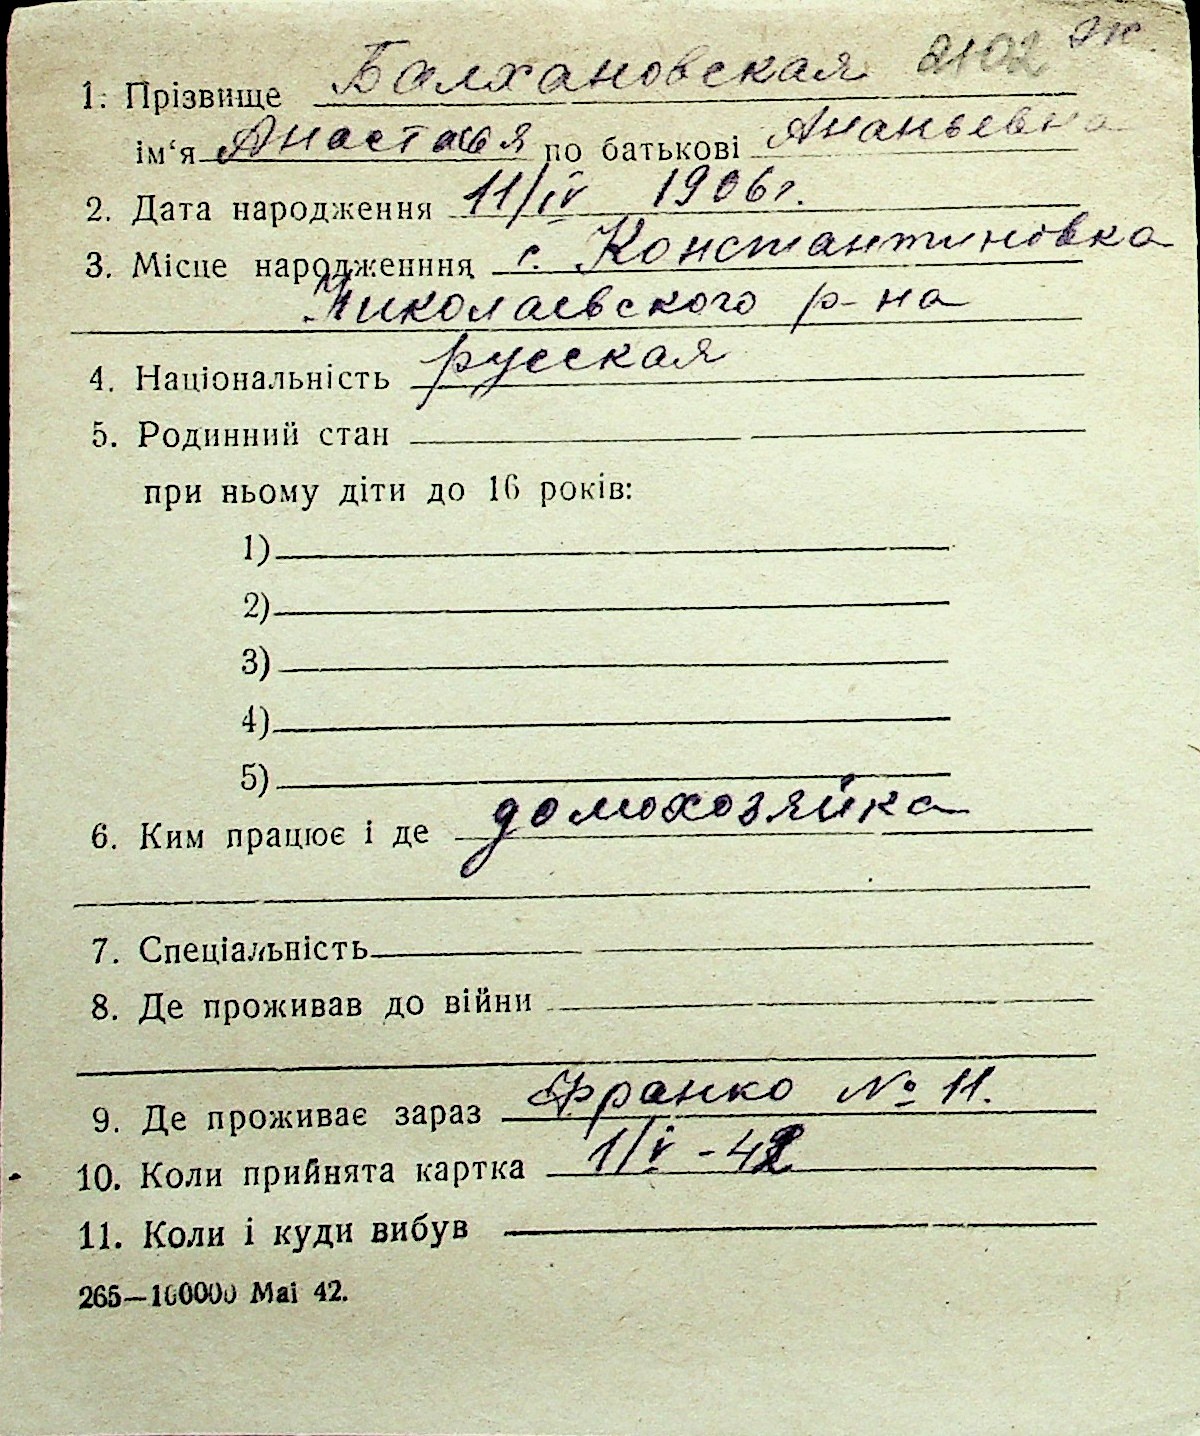 2102 эк.
1. Прізвище Балхановская
ім‘я Анастасья по батькові Ананьевна
2. Дата народження 11/IV 1906 г.
3. Місце народженння с. Константиновка
Николаевского р-на
4. Національність русская
5. Родинний стан
при ньому діти до 16 років:
1)
2)
3)
4)
5)
6. Ким працює і де домохозяйка
7. Спеціальність
8. Де проживав до війни
9. Де проживає зараз Франко № 11.
10. Коли прийнята картка 1/V - 42
11. Коли і куди вибув
265—100000 Mai 42.